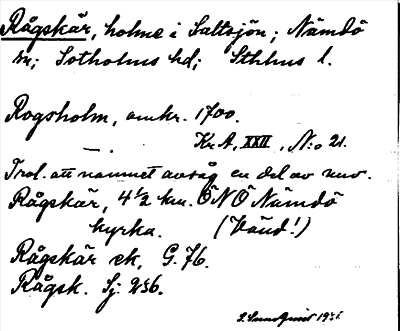 Rågskär, holme i Saltsjön; Nämdö
sn; Sotholms hd; Sthlms l.
Rogsholm, omkr. 1700.
— . Kr A, XXII, N:o 21.
Trol. att namnet avsåg en del av nuv.
Rågskär, 4½ km. ÖNÖ Nämdö
kyrka. (Vänd!)
Rågskär ek, G. 76.
Rågsk. Sj. 236.